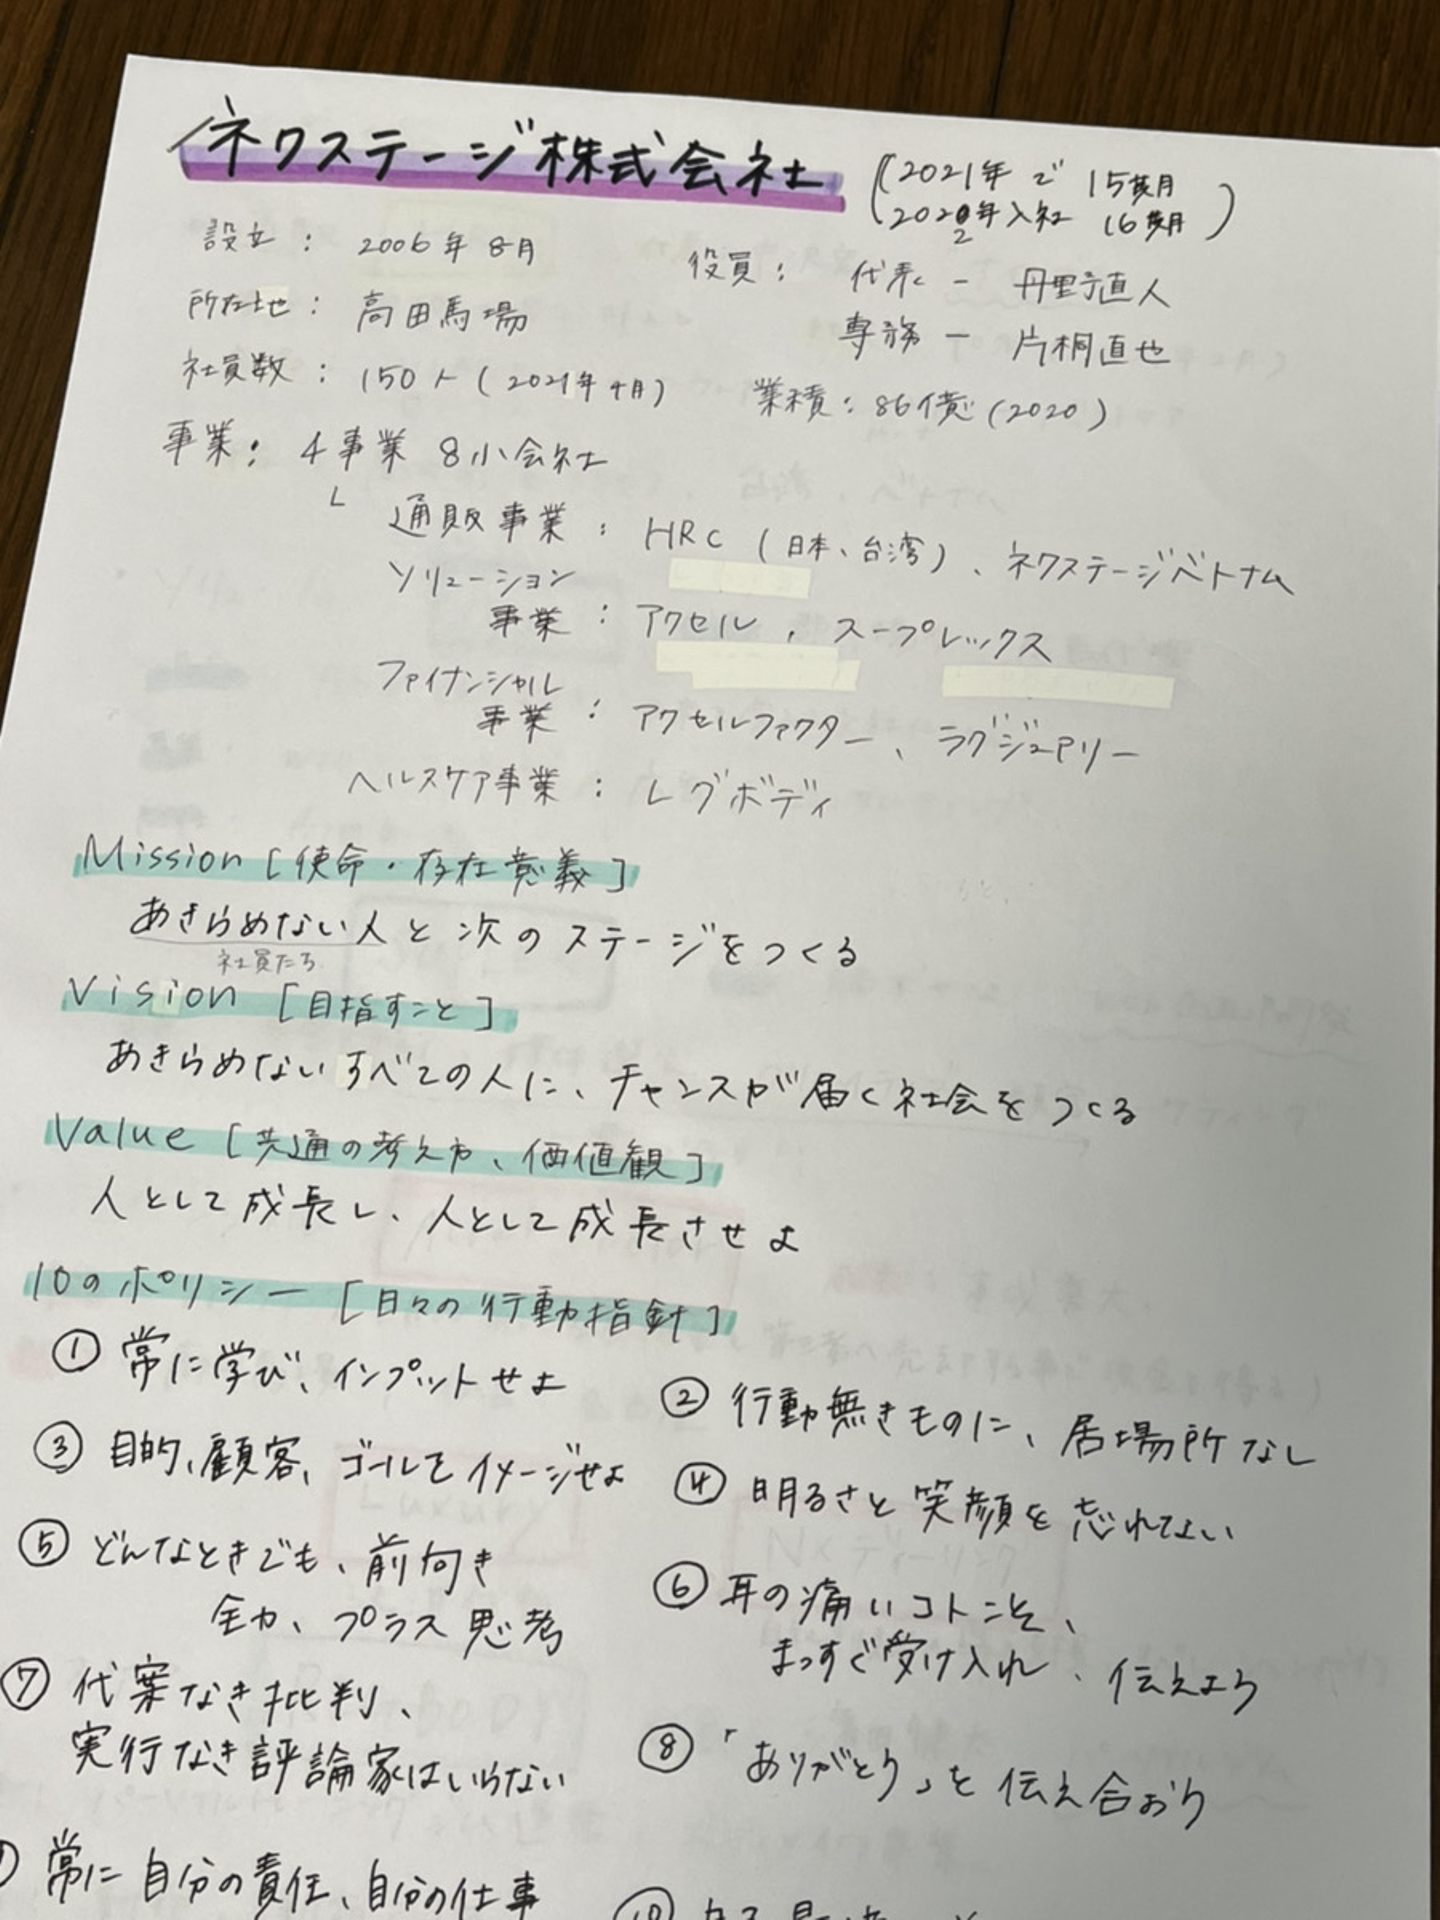 ネクステージ株式会社
(2021年で 15期
2022年入社 16期)
設立 : 2006年8月
役員 : 代表 - 丹野直人
専務 - 片桐直也
所在地 : 高田馬場
社員数 : 150人 (2021年4月)
業積 : 86億 (2020)
事業 : 4事業 8小会社
└ 通販事業 : HRC (日本、台湾)、ネクステージベトナム
ソリューション
事業 : アクセル , スープレックス
ファイナンシャル
事業 : アクセルファクター、ラグジュアリー
ヘルスケア事業 : レグボディ
Mission [使命・存在意義]
あきらめない人と次のステージをつくる
社員たち
Vision [目指すこと]
あきらめないすべての人に、チャンスが届く社会をつくる
Value [共通の考え方、価値観]
人として成長し、人として成長させよ
10のポリシー [日々の行動指針]
① 常に学び、インプットせよ
② 行動無きものに、居場所なし
③ 目的、顧客、ゴールをイメージせよ
④ 明るさと笑顔を忘れない
⑤ どんなときでも、前向き
全力、プラス思考
⑥ 耳の痛いコトこそ、
まっすぐ受け入れ、伝えよう
⑦ 代案なき批判、
実行なき評論家はいらない
⑧ 「ありがとう」を伝え合おう
常に自分の責任、自分の仕事
⑩